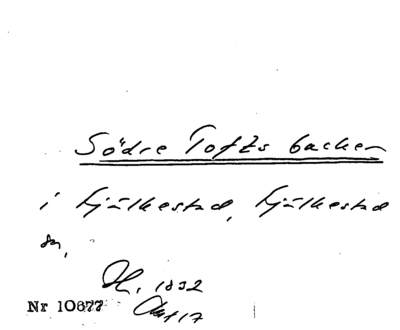 Södre Tofts backen
i Fjälkestad, Fjälkestad
sn,
Nr 10677
1832
Akt 17